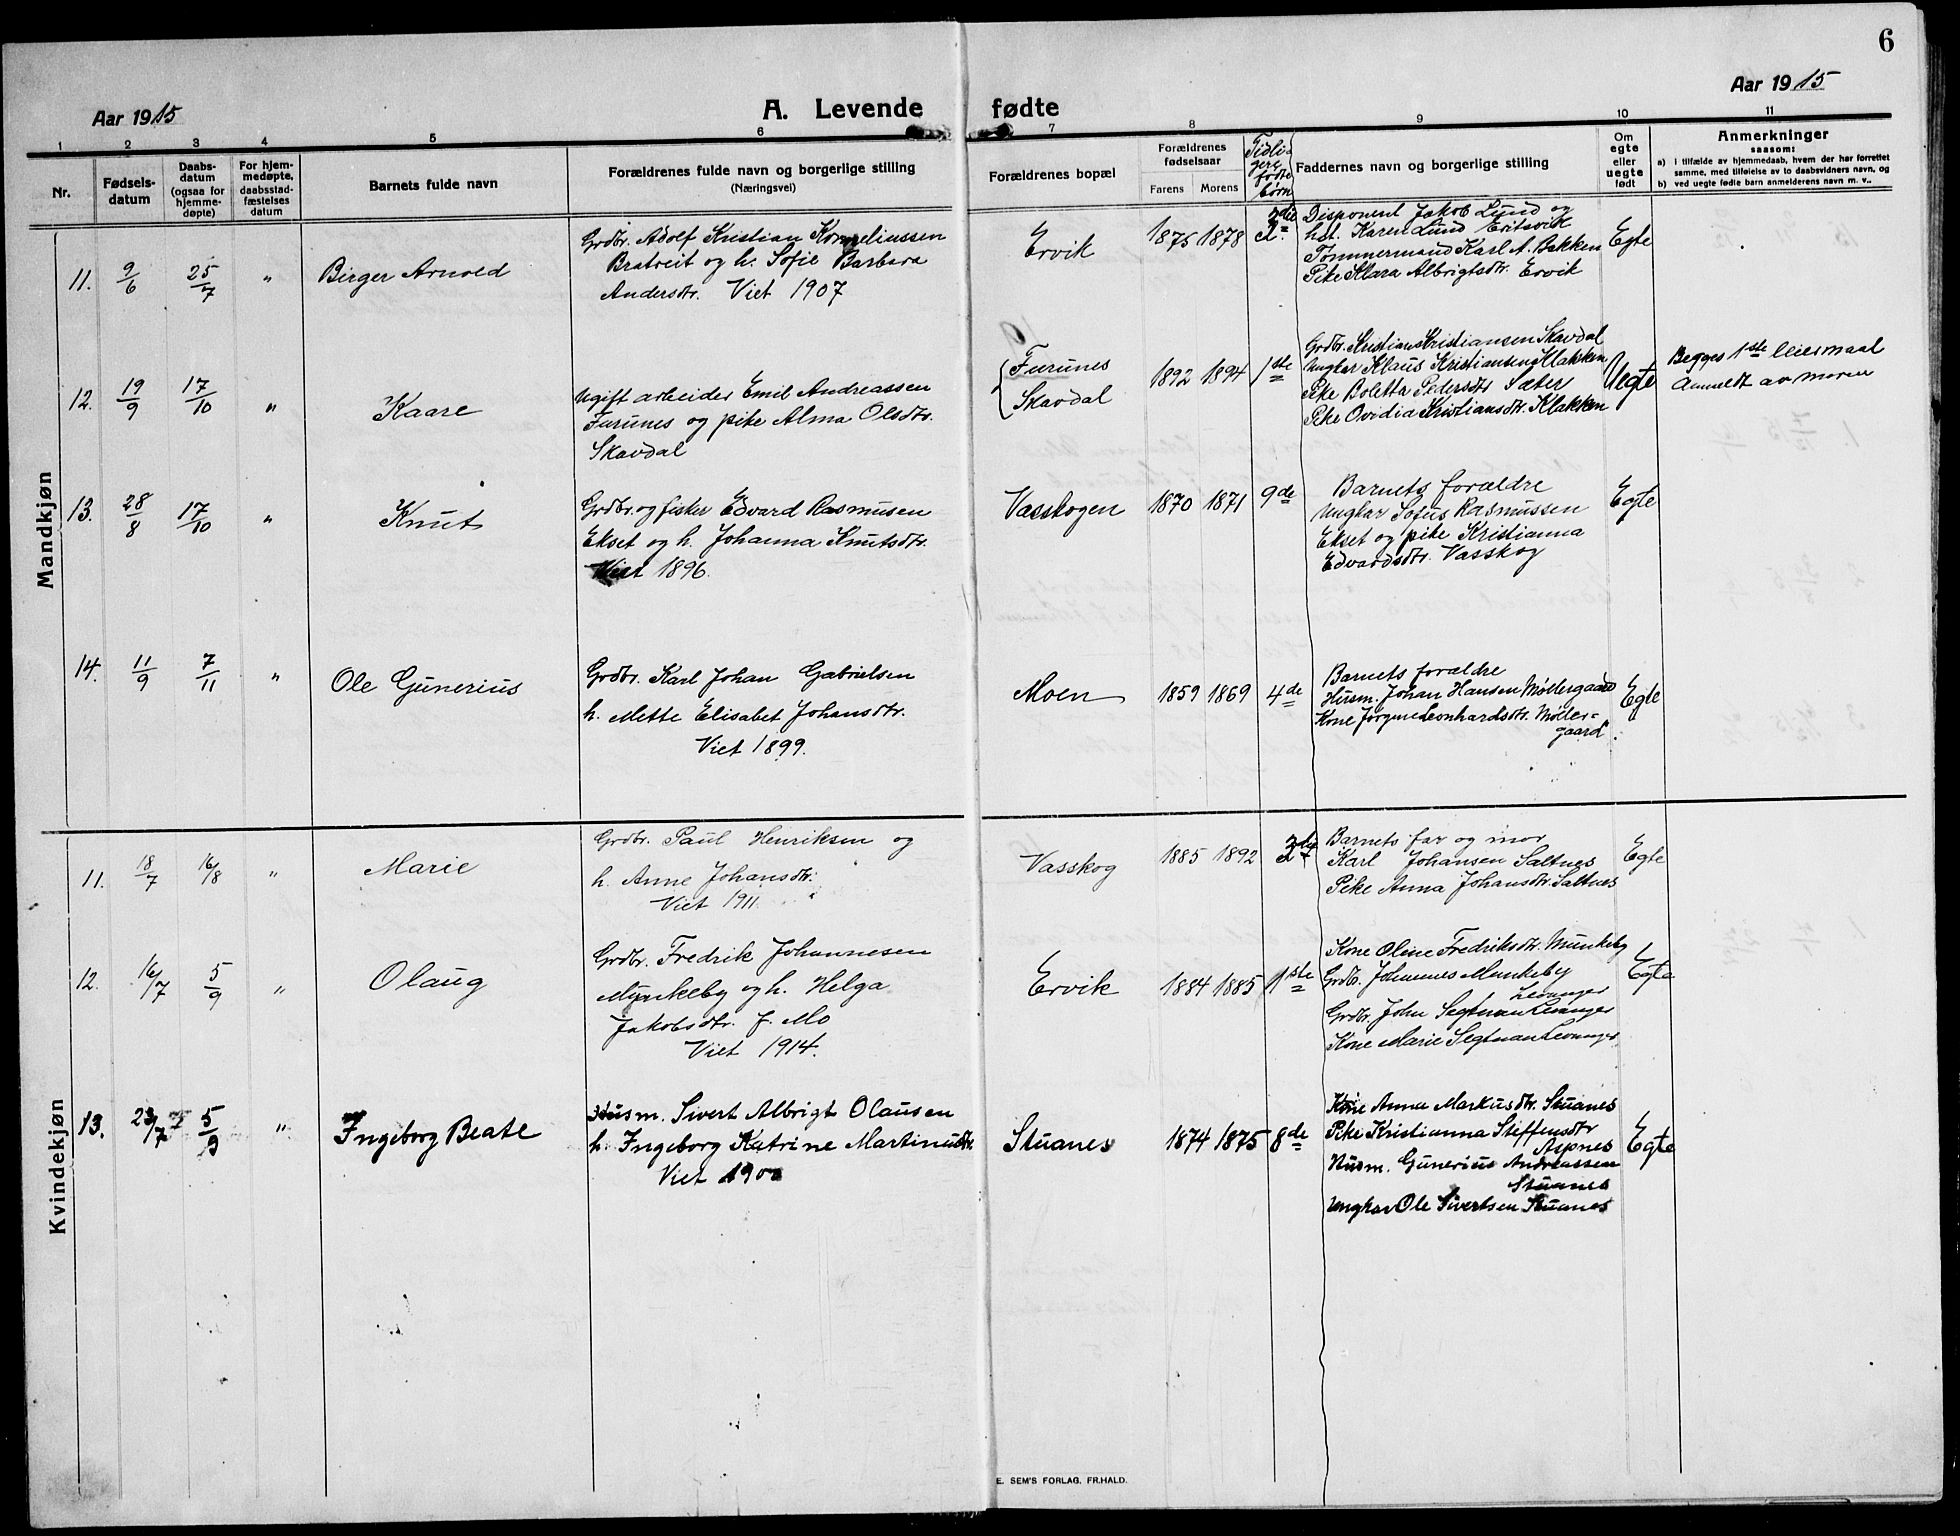 6
Aar 1915
A. Levende fødte
Aar 1915
1 2 3 4 5 6 7 8 9 10 11
Nr.
Fødsels-
datum
Daabs-
datum
(ogsaa for
hjemme-
døpte)
For hjem-
medøpte,
daabsstad-
fæstelses
datum
Barnets fulde navn
Forældrenes fulde navn og borgerlige stilling
(Næringsvei)
Forældrenes bopæl
Forældrenes
fødselsaar
Farens Morens
Tidli-
gere
fødte
børn
Faddernes navn og borgerlige stilling
Om
egte
eller
uegte
født
Anmerkninger
saasom:
a) i tilfælde av hjemmedaab, hvem der har forrettet
samme, med tilføielse av to daabsvidners navn, og
b) ved uegte fødte barn anmelderens navn m. v..
Mandkjøn
11. 9/6 25/7 " Birger Arnold
Grdbr. Adolf Kristian Korneliussen
Bratreit og h. Sofie Barbara
Andersdtr. Viet 1907
Ervik 1875 1878
Disponent Jakob Lund og
hst. Karen Lund Eritsvik
Tømmermand Karl A. Bakken
Pike Klara Albrigtsdtr. Ervik
Egte
12. 19/9 17/10 " Kaare
Ugift arbeider Emil Andreassen
Furunes og pike Alma Olsdtr.
Skavdal
Furunes
Skavdal
1892 1894 1ste
Grdbr. Kristian Kristiansen Skavdal
Ungkar Klaus Kristiansen Klakken
Pike Boletta Pedersdtr Sæter
Pike Ovidia Kristiansdtr. Klakken
Uegte
Begges 1ste leiermaal
Anmeldt av moren
13. 28/8 17/10 " Knut
Grdbr. og fisker Edvard Rasmusen
Ekset og h. Johanna Knutsdtr.
Viet 1896.
Vasskogen 1870 1871 9de
Barnets forældre
Ungkar Sofus Rasmussen
Ekset og pike Kristianna
Edvardsdtr. Vasskog
Egte
14. 11/9 7/11 " Ole Gunerius
Grdbr. Karl Johan Gabrielsen
h. Mette Elisabet Johansdtr.
Viet 1899.
Moen 1859 1869 4de
Barnets forældre
Husm. Johan Hansen Møllergaard
Kone Jørgine Leonhardsdtr. Møller-
gaard.
Egte
Kvindekjøn
11. 18/7 16/8 " Marie
Grdbr. Paul Henriksen og
h. Anne Johansdtr.
Viet 1911.
Vasskog 1885 1892
Barnets far og mor
Karl Johansen Saltnes
Pike Anna Johansdtr. Saltnes
Egte
12. 16/7 5/9 " Olaug
Grdbr. Fredrik Johannesen
Mynkeby og h. Helga
Jakobsdtr. f. Mo
Viet 1914.
Ervik 1884 1885 1ste
Kone Oline Fredriksdtr. Munkeby
Grdbr. Johannes Munkeby
Levanger
Grdbr. John Segtnan Levanger
Kone Marie Segtnan Levanger.
Egte
13. 23/7 5/9 " Ingeborg Beate
Husm. Sivert Albrigt Olausen
h. Ingeborg Katrine Martinusdtr.
Viet 1900
Stuanes 1874 1875 8de
Kone Anna Markusdtr. Stuanes
Pike Kristianna Steffensdtr
Aspnes
Husm. Gunerius Andreassen
Stuanes
Ungkar Ole Sivertsen Stuanes
Egte
E. SEM'S FORLAG. FR.HALD.